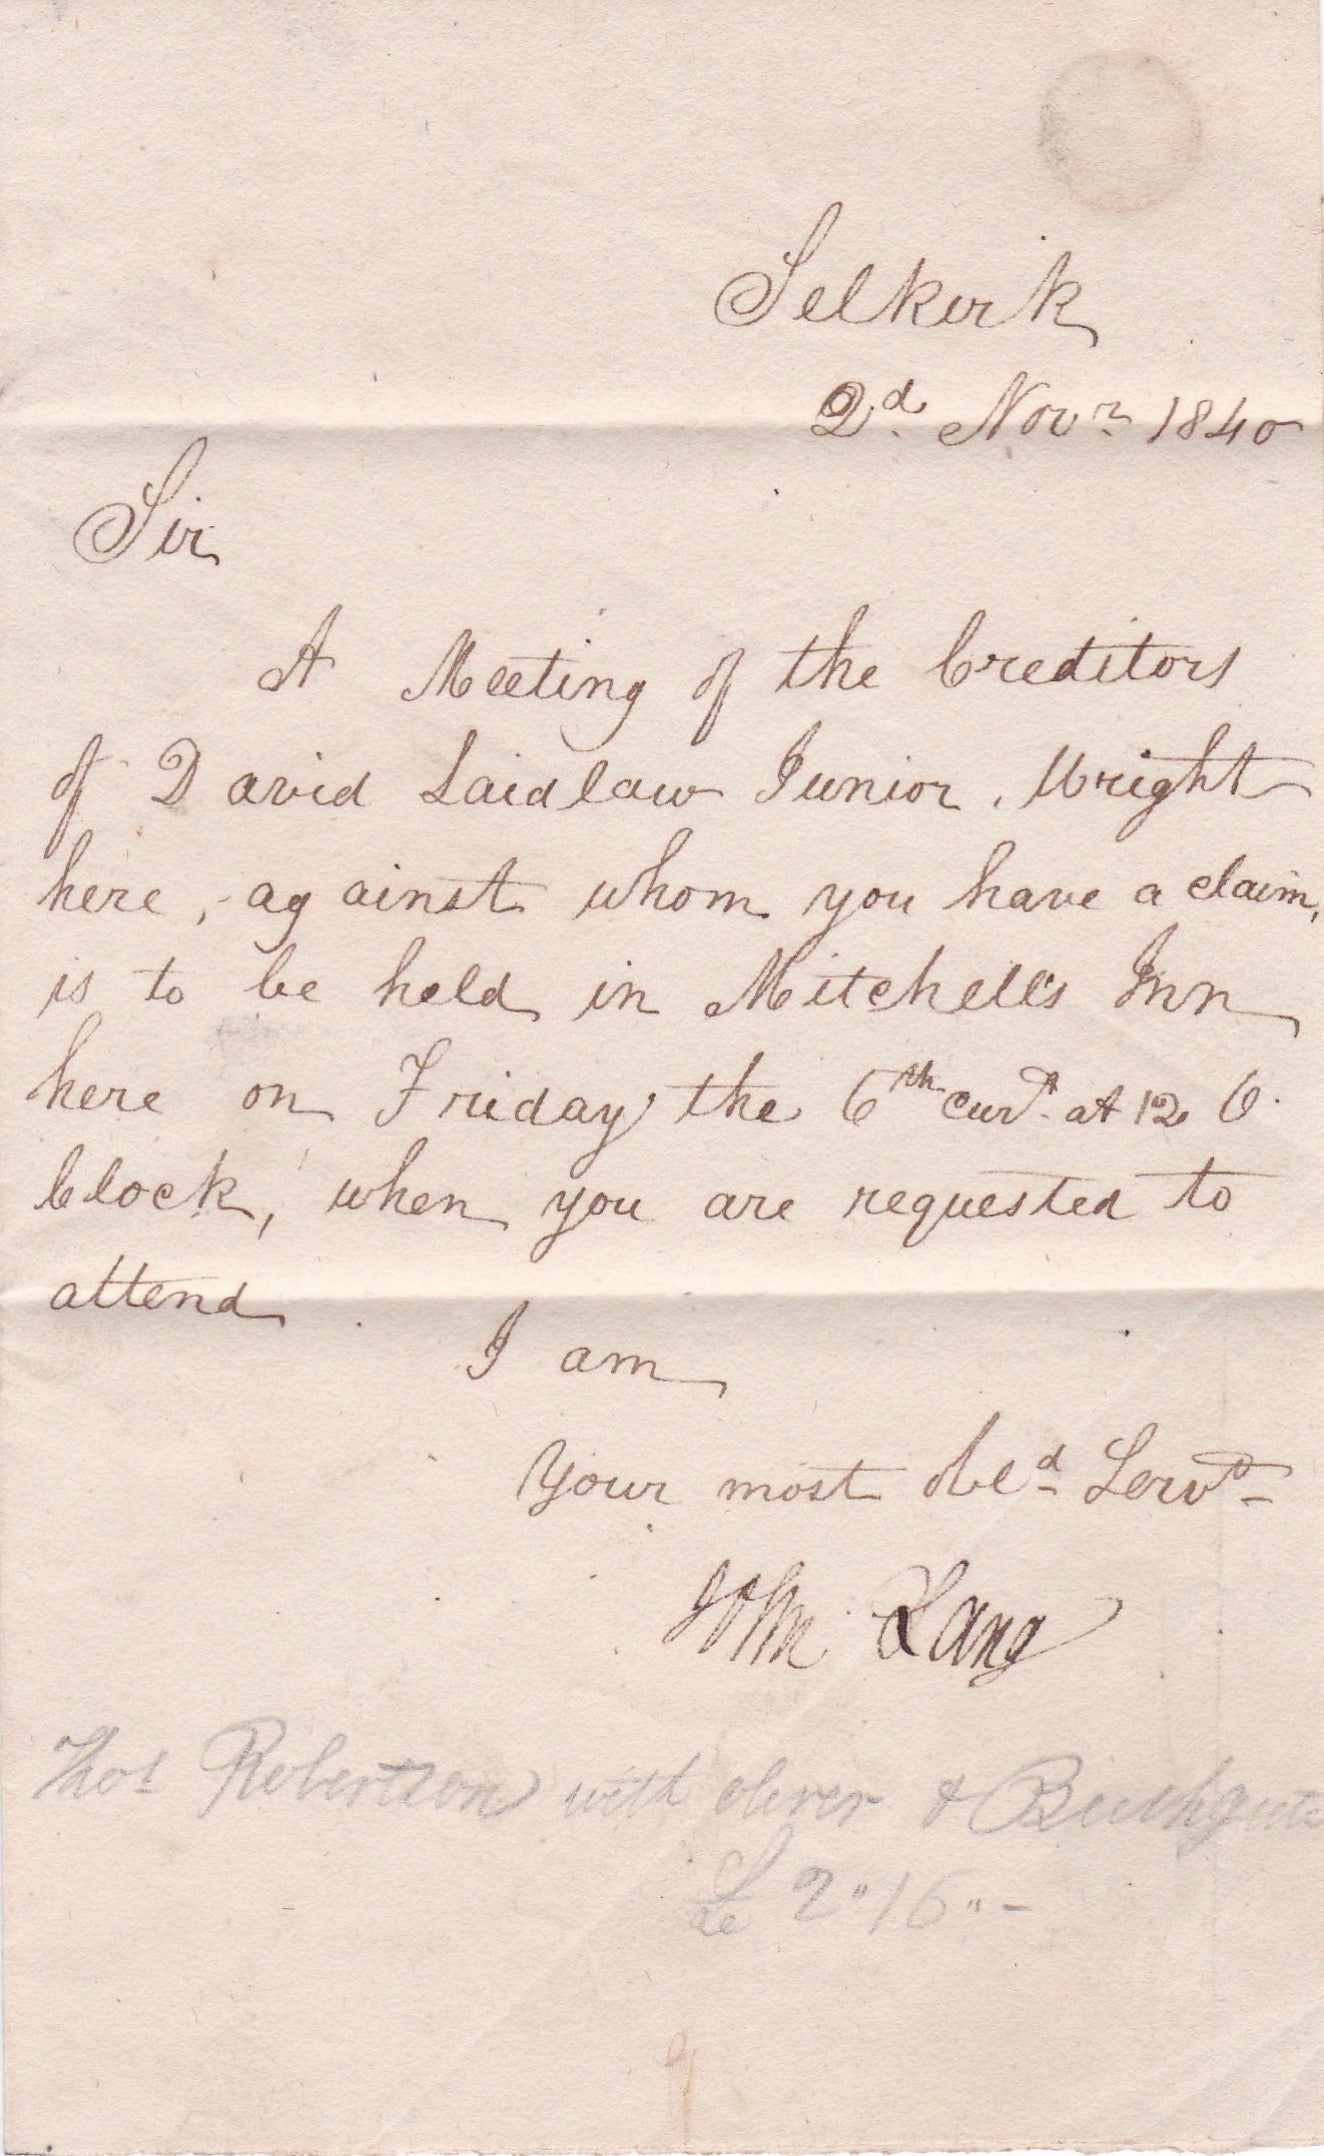 Selkirk
2d. Novr. 1840
Sir
A Meeting of the Creditors
of David Laidlaw Junior, Wright
here, against whom you have a claim,
is to be held in Mitchell's Inn
here on Friday the 6th curt. at 12 O.
Clock, when you are requested to
attend.
I am
Your most obed. Servt.
John Lang
Thos Robertson with &
£ 2"16"-